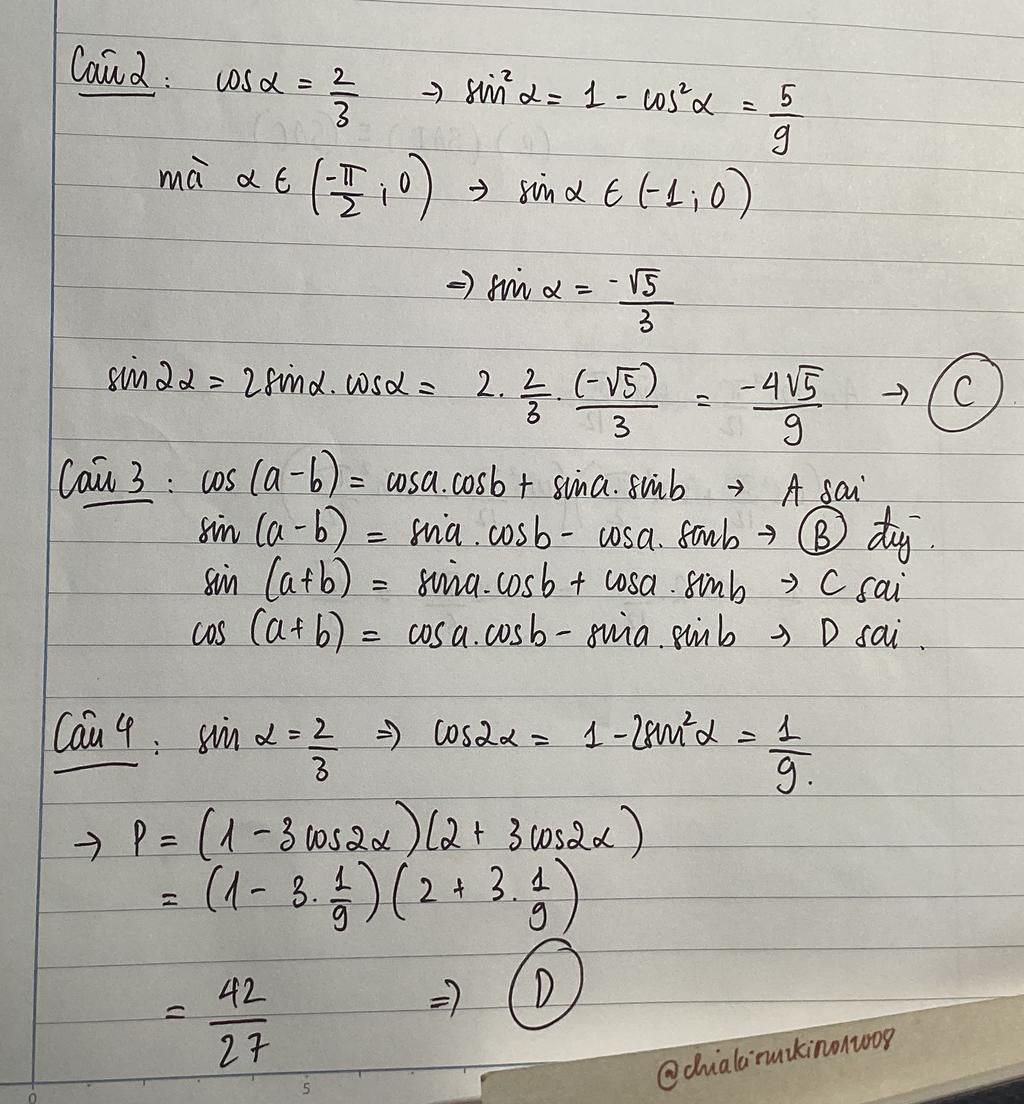 Câu 2: cosα = 2/3 → sin²α = 1 - cos²α = 5/9
mà α ∈ (-π/2 ; 0) → sin α ∈ (-1 ; 0)
⇒ sin α = -√5/3
sin2α = 2sinα.cosα = 2. 2/3 . (-√5)/3 = -4√5/9 → C
Câu 3: cos (a-b) = cosa.cosb + sina.sinb → A sai
sin (a-b) = sina.cosb - cosa.sinb → B
sin (a+b) = sina.cosb + cosa.sinb → C sai
cos (a+b) = cosa.cosb - sina.sinb → D sai.
Câu 4: sin α = 2/3 ⇒ cos2α = 1 - 2sin²α = 1/9.
→ P = (1 - 3cos2α)(2 + 3cos2α)
= (1 - 3.1/9)(2 + 3.1/9)
= 42/27 ⇒ D
0 5